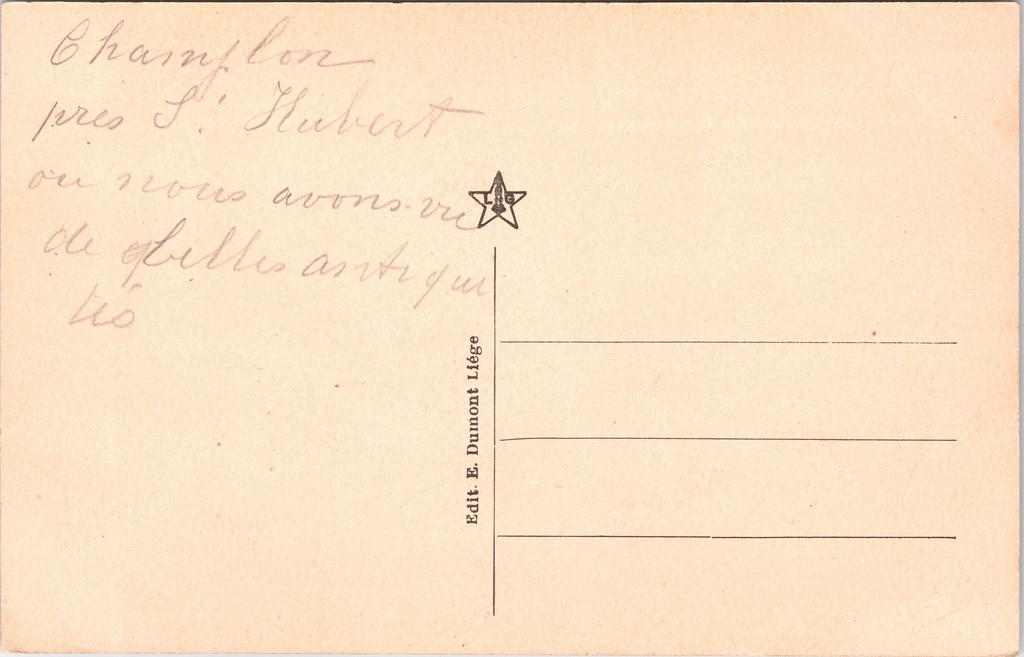 Champlon
pres St Hubert
ou nous avons vu
de belles antiqui
tés
L G
Edit. E. Dumont Liége